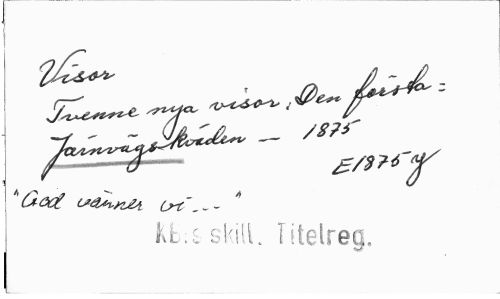 Visor
Tvenne nya visor. Den första =
Järnvägskväden — 1875
E1875 y
"God vänner vi... "
KB:s skill. Titelreg.